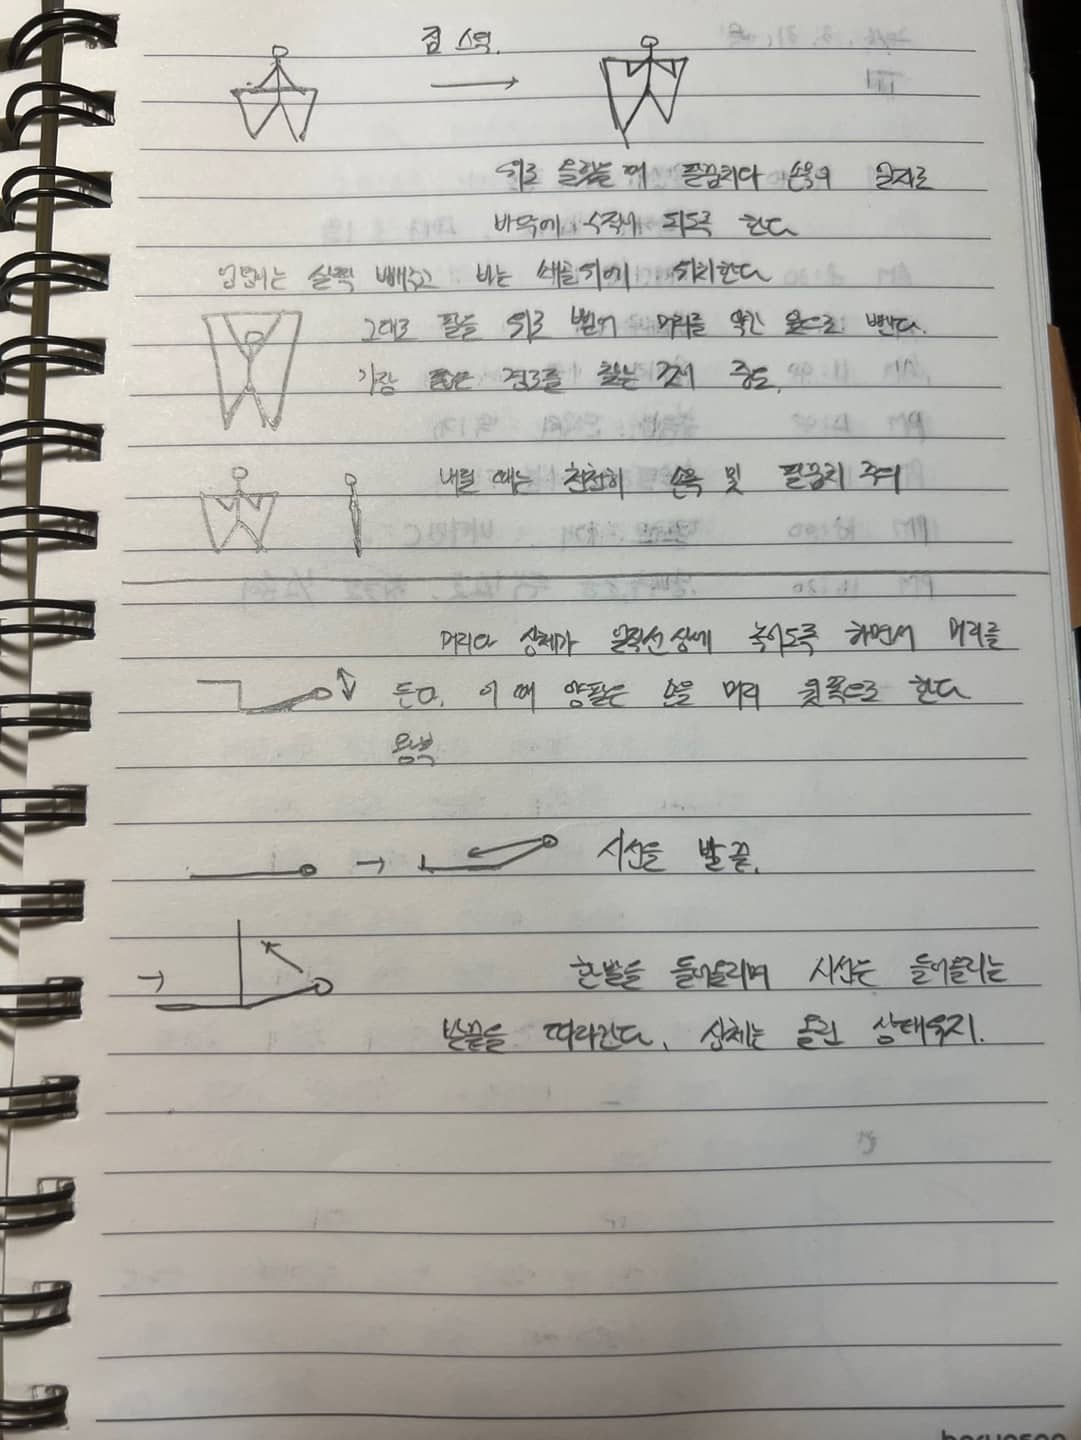 점 스텝.
위로 올릴 때 팔꿈치와 손목이 일자로
바닥에 수직이 되도록 한다
엉덩이는 살짝 빼주고 바는 쇄골위에 위치한다
그대로 팔을 위로 뻗어 머리를 약간 앞으로 뺀다.
가장 짧은 경로를 찾는 것이 중요.
내릴 때는 천천히 손목 및 팔꿈치 주의
머리와 상체가 일직선상에 놓이도록 하면서 머리를
든다. 이 때 양팔은 손을 머리 뒷쪽으로 한다
왕복
시선을 발끝.
한발을 들어올리며 시선은 들어올리는
발끝을 따라간다. 상체는 올린 상태유지.